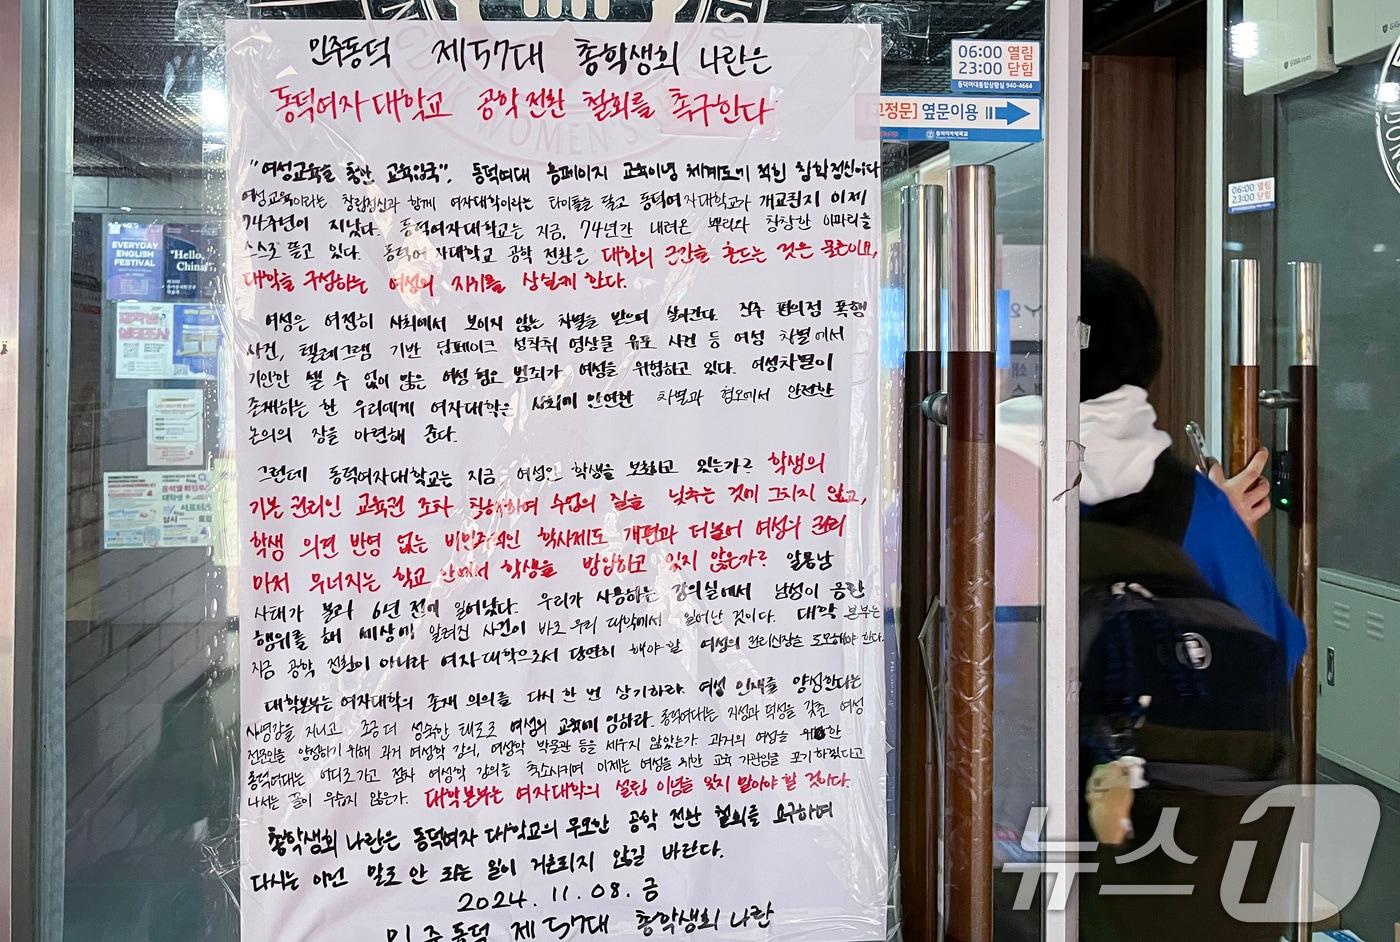 민주동덕 제57대 총학생회 나란은
동덕여자대학교 공학전환 철회를 촉구한다
"여성교육을 통한 교육입국". 동덕여대 홈페이지 교육이념 체계도에 적힌 창학정신이다
여성교육이라는 창립정신과 함께 여자대학이라는 타이틀을 달고 동덕여자대학교가 개교한지 이제
74주년이 지났다. 동덕여자대학교는 지금, 74년간 내려온 뿌리와 창창한 이파리를
스스로 뜯고 있다. 동덕여자대학교 공학 전환은 대학의 근간을 흔드는 것은 물론이요,
대학을 구성하는 여성의 지위를 상실케 한다.
여성은 여전히 사회에서 보이지 않는 차별을 받으며 살아간다. 진주 편의점 폭행
사건, 텔레그램 기반 딥페이크 성착취 영상물 유포 사건 등 여성 차별에서
기인한 셀 수 없이 많은 여성 혐오 범죄가 여성을 위협하고 있다. 여성차별이
존재하는 한 우리에게 여자대학은 사회에 만연한 차별과 혐오에서 안전한
논의의 장을 마련해 준다.
그런데 동덕여자대학교는 지금 여성인 학생을 보호하고 있는가? 학생의
기본 권리인 교육권 조차 침해하며 수업의 질을 낮추는 것에 그치지 않고,
학생 의견 반영 없는 비민주적인 학사제도 개편과 더불어 여성의 권리
마저 무너지는 학교 안에서 학생을 방임하고 있지 않은가? 알몸남
사태가 불과 6년 전에 일어났다. 우리가 사용하는 강의실에서 남성이 음란
행위를 해 세상에 알려진 사건이 바로 우리 대학에서 일어난 것이다. 대학 본부는
지금 공학 전환이 아니라 여자대학으로서 당연히 해야 할 여성의 권리신장을 도모해야 한다.
대학본부는 여자대학의 존재 의의를 다시 한 번 상기하라. 여성 인재를 양성한다는
사명감을 지니고, 조금 더 성숙한 태도로 여성의 교육에 임하라. 동덕여대는 지성과 덕성을 갖춘 여성
전문인을 양성하기 위해 과거 여성학 강의, 여성학 박물관 등을 세우지 않았는가. 과거의 여성을 위한
동덕여대는 어디로 가고 점차 여성학 강의을 축소시키며 이제는 여성을 위한 교육 기관임을 포기하겠다고
나서는 꼴이 우습지 않은가. 대학본부는 여자대학의 설립 이념을 잊지 말아야 할 것이다.
총학생회 나란은 동덕여자대학교의 무모한 공학 전환 철회를 요구하며
다시는 이런 말도 안 되는 일이 거론되지 않길 바란다.
2024. 11. 08. 금
민주동덕 제57대 총학생회 나란
06:00 열림
23:00 닫힘
동덕여대종합상황실 940-4664
정문] 옆문이용
동덕여자대학교
06:00 열림
23:00 닫힘
EVERYDAY
ENGLISH
FESTIVAL
"Hello,
China"
WOMEN'S
뉴스1